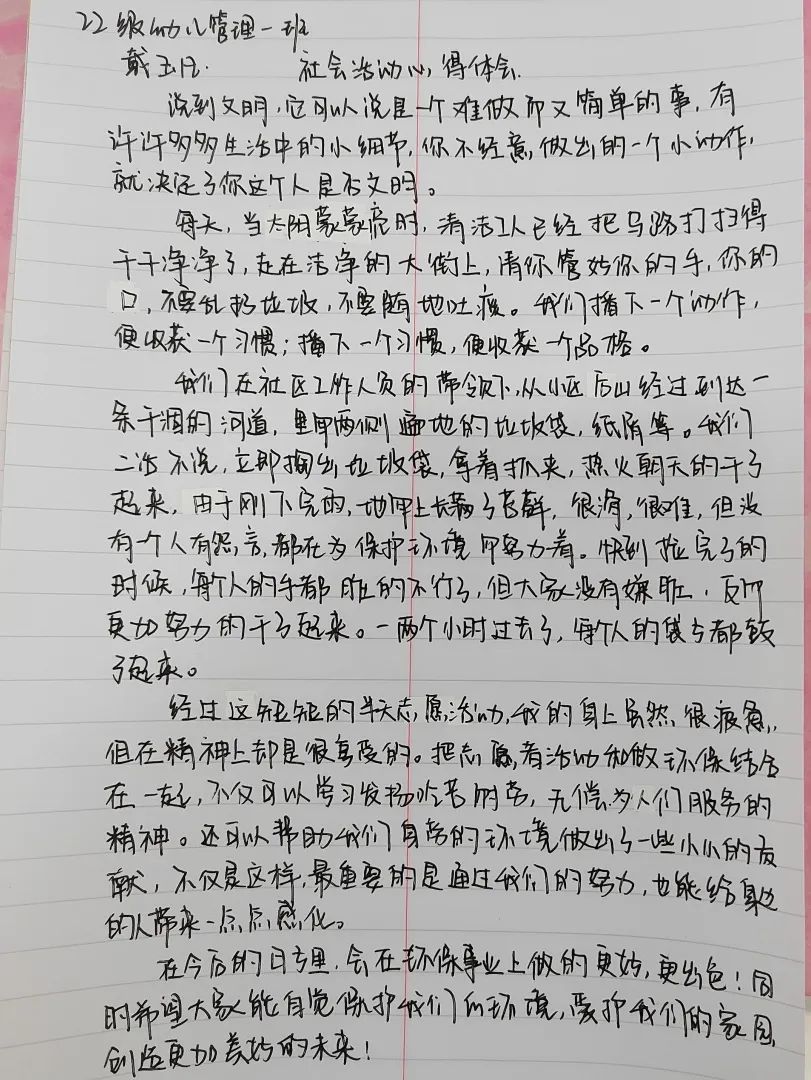 22级幼儿管理一班
戴玉 社会活动心得体会
说到文明,它可以说是一个难做而又简单的事,有
许许多多生活中的小细节,你不经意做出的一个小动作,
就决定了你这个人是否文明。
每天,当太阳蒙蒙亮时,清洁工人已经把马路打扫得
干干净净了,走在洁净的大街上,请你管好你的手,你的
口,不要乱扔垃圾,不要随地吐痰。我们播下一个动作,
便收获一个习惯;播下一个习惯,便收获一个品格。
我们在社区工作人员的带领下,从小区后山经过到达一
条干涸的河道,里甲两侧遍地的垃圾袋,纸屑等。我们
二话不说,立即掏出垃圾袋,拿着抓夹,热火朝天的干了
起来,由于刚下完雨,地甲上长满了苔藓,很滑,很难,但没
有一个人有怨言,都在为保护环境而努力着。快到捡完了的
时候,每个人的手都脏的不行了,但大家没有嫌脏,反而
更加努力的干了起来。一两个小时过去了,每个人的袋子都鼓
了起来。
经过这短短的半天志愿活动,我的身上虽然很疲惫,
但在精神上却是很享受的。把志愿者活动和做环保结合
在一起,不仅可以学习发扬吃苦耐劳,无偿为人们服务的
精神。还可以帮助我们身旁的环境做出了一些小小的贡
献,不仅是这样,最重要的是通过我们的努力,也能给身边
的人带来一点点感化。
在今后的日子里,会在环保事业上做的更好,更出色!同
时希望大家能自觉保护我们的环境,爱护我们的家园,
创造更加美好的未来!